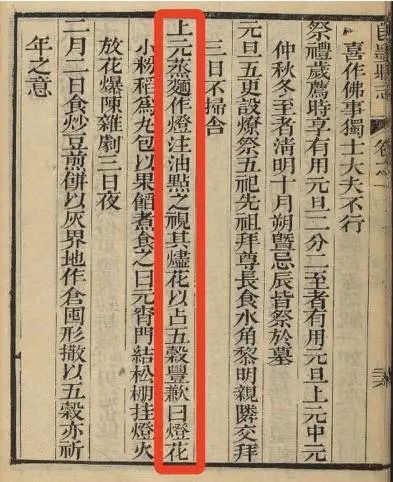 喜作佛事獨士大夫不行
祭禮歲薦時享有用元旦二分二至者有用元旦上元中元
仲秋冬至者清明十月朔暨忌辰皆祭於墓
元旦五更設燎祭五祀先祖拜尊長食水角黎明親隣交拜
三日不掃舍
上元蒸麵作燈注油點之視其燼花以占五穀豐歉曰燈花
小粉稻為丸包以果餡煮食之曰元宵門結松棚挂燈火
放花爆陳雜劇三日夜
二月二日食炒豆煎餅以灰界地作倉囤形撒以五穀亦祈
年之意